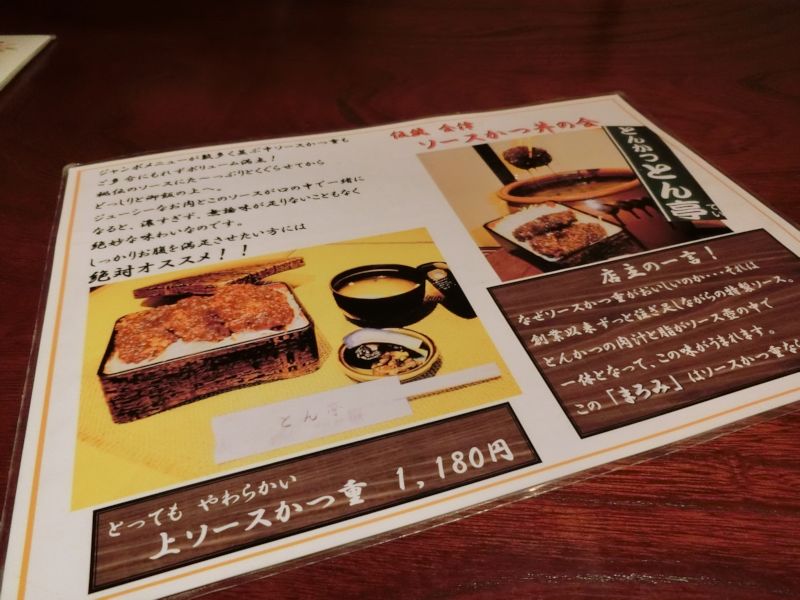 伝統 会津
ソースかつ丼の会
とんかつとん亭
てい
ジャンボメニューが数多く並ぶ中ソースかつ重も
ご多分にもれずボリューム満点！
秘伝のソースにたーっぷりとくぐらせてから
どっしりと御飯の上へ。
ジューシーなお肉とこのソースが口の中で一緒に
なると、濃すぎず、無論味が足りないこともなく
絶妙な味わいなのです。
しっかりお腹を満足させたい方には
絶対オススメ！！
店主の一言！
なぜソースかつ重がおいしいのか・・・それは
創業以来ずっと注ぎ足しながらの特製ソース。
とんかつの肉汁と脂がソース壺の中で
一体となって、この味がうまれます。
この「まろみ」はソースかつ重なら
とん亭
とっても やわらかい
上ソースかつ重 1,180円